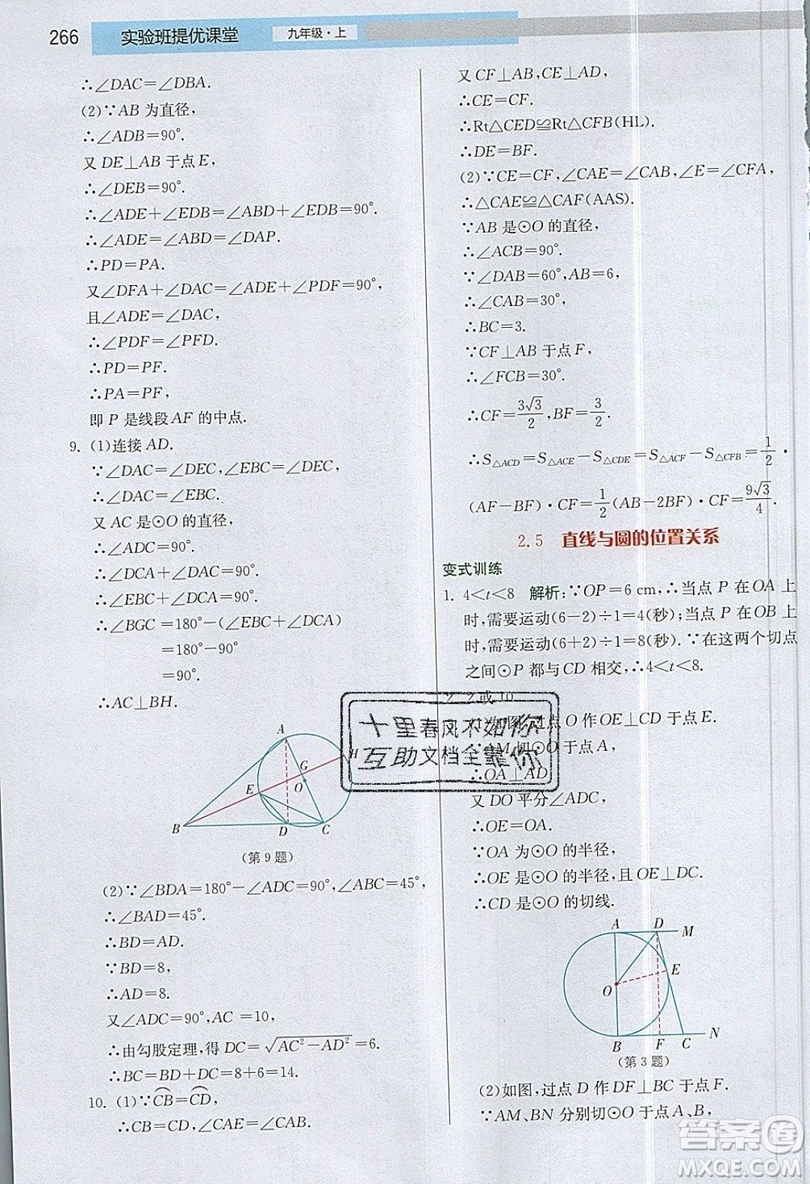 266 实验班提优课堂 九年级·上
∴∠DAC=∠DBA.
(2)∵AB 为直径,
∴∠ADB=90°.
又 DE⊥AB 于点 E,
∴∠DEB=90°.
∴∠ADE+∠EDB=∠ABD+∠EDB=90°.
∴∠ADE=∠ABD=∠DAP.
∴PD=PA.
又∠DFA+∠DAC=∠ADE+∠PDF=90°,
且∠ADE=∠DAC,
∴∠PDF=∠PFD.
∴PD=PF.
∴PA=PF,
即 P 是线段 AF 的中点.
9. (1)连接 AD.
∵∠DAC=∠DEC,∠EBC=∠DEC,
∴∠DAC=∠EBC.
又 AC 是⊙O 的直径,
∴∠ADC=90°.
∴∠DCA+∠DAC=90°.
∴∠EBC+∠DCA=90°.
∴∠BGC=180°−(∠EBC+∠DCA)
=180°−90°
=90°.
∴AC⊥BH.
A
G
H
E
O
B
D
C
(第 9 题)
(2)∵∠BDA=180°−∠ADC=90°,∠ABC=45°,
∴∠BAD=45°.
∴BD=AD.
∵BD=8,
∴AD=8.
又∠ADC=90°,AC=10,
∴由勾股定理,得 DC=√(AC²−AD²)=6.
∴BC=BD+DC=8+6=14.
10. (1)∵C͡B=C͡D,
∴CB=CD,∠CAE=∠CAB.
又 CF⊥AB,CE⊥AD,
∴CE=CF.
∴Rt△CED≌Rt△CFB(HL).
∴DE=BF.
(2)∵CE=CF,∠CAE=∠CAF,∠CEA=∠CFA,
∴△CAE≌△CAF(AAS).
∵AB 是⊙O 的直径,
∴∠ACB=90°.
∵∠DAB=60°,AB=6,
∴∠CAB=30°,
∴BC=3.
∵CF⊥AB 于点 F,
∴∠FCB=30°.
∴CF=3√3/2,BF=3/2.
∴S△ACD=S△ACE−S△CDE=S△ACF−S△CFB=1/2·
(AF−BF)·CF=1/2(AB−2BF)·CF=9√3/4.
2.5 直线与圆的位置关系
变式训练
1. 4<t<8 解析:∵OP=6 cm,∴当点 P 在 OA 上
时,需要运动(6−2)÷1=4(秒);当点 P 在 OB 上
时,需要运动(6+2)÷1=8(秒).∵在这两个切点
之间⊙P 都与 CD 相交,∴4<t<8.
2. 2 或 10
如图,过点 O 作 OE⊥CD 于点 E.
∵AM 切⊙O 于点 A,
∴OA⊥AD.
又 DO 平分∠ADC,
∴OE=OA.
∵OA 为⊙O 的半径,
∴OE 是⊙O 的半径,且 OE⊥DC.
∴CD 是⊙O 的切线.
A
D
M
E
O
B
F
C
N
(第 3 题)
(2)如图,过点 D 作 DF⊥BC 于点 F.
∵AM,BN 分别切⊙O 于点 A,B,
十里春风不如你
互助文档全靠你
答案圈
MXQE.COM